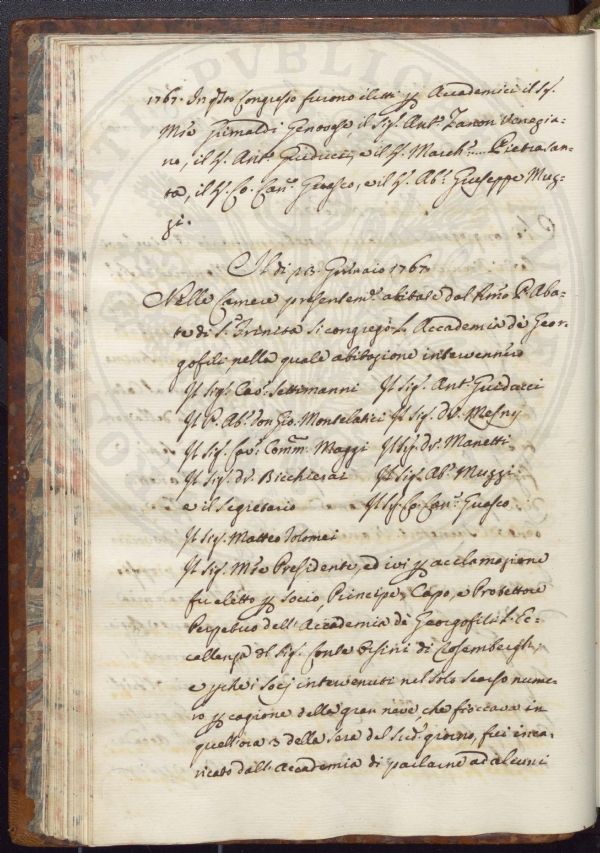 1767. In q.sto Congresso furono eletti p Accademici il Sig.
M.se Grimaldi Genovese il Sig. Ant.o Zanon Venezia-
no, il S. Ant.o Guiducci, e il S. March.e Pietrasan-
ta, il S. Co. Can.o Guasco, e il S. Ab.e Giuseppe Muz-
zi.
Il di 13. Gennaio 1767.
Nelle Camere presentem.e abitate dal R.mo P. Aba-
te di S.ta Trinita si congregò l'Accademia de Geor-
gofili nella quale abitazione intervennero
Il Sig. Cav. Settimanni Il Sig. Ant.o Guiducci
Il P. Ab.e Don Gio. Montelatici Il Sig. D.r Mesny
Il Sig. Cav. Comm. Maggi Il Sig. D.r Manetti
Il Sig. D.r Bicchierai Il Sig. Ab.e Muzzi
e il Segretario Il Sig. Co. Can.o Guasco
Il Sig. Matteo Tolomei
Il Sig. M.se Presidente, ed ivi p acclamazione
fu eletto p Socio, Principe, Capo, e Protettore
Perpetuo dell'Accademia de Georgofili l'Ec-
cellenza del Sig. Conte Orsini di Rosembergh,
e p.chè i Socj intervenuti nel solo scarso nume-
ro p cagione della gran neve, che fioccava in
quell'ora 3 della sera del sud.o giorno, fui inca-
ricato dall'Accademia di parlarne ad alcuni